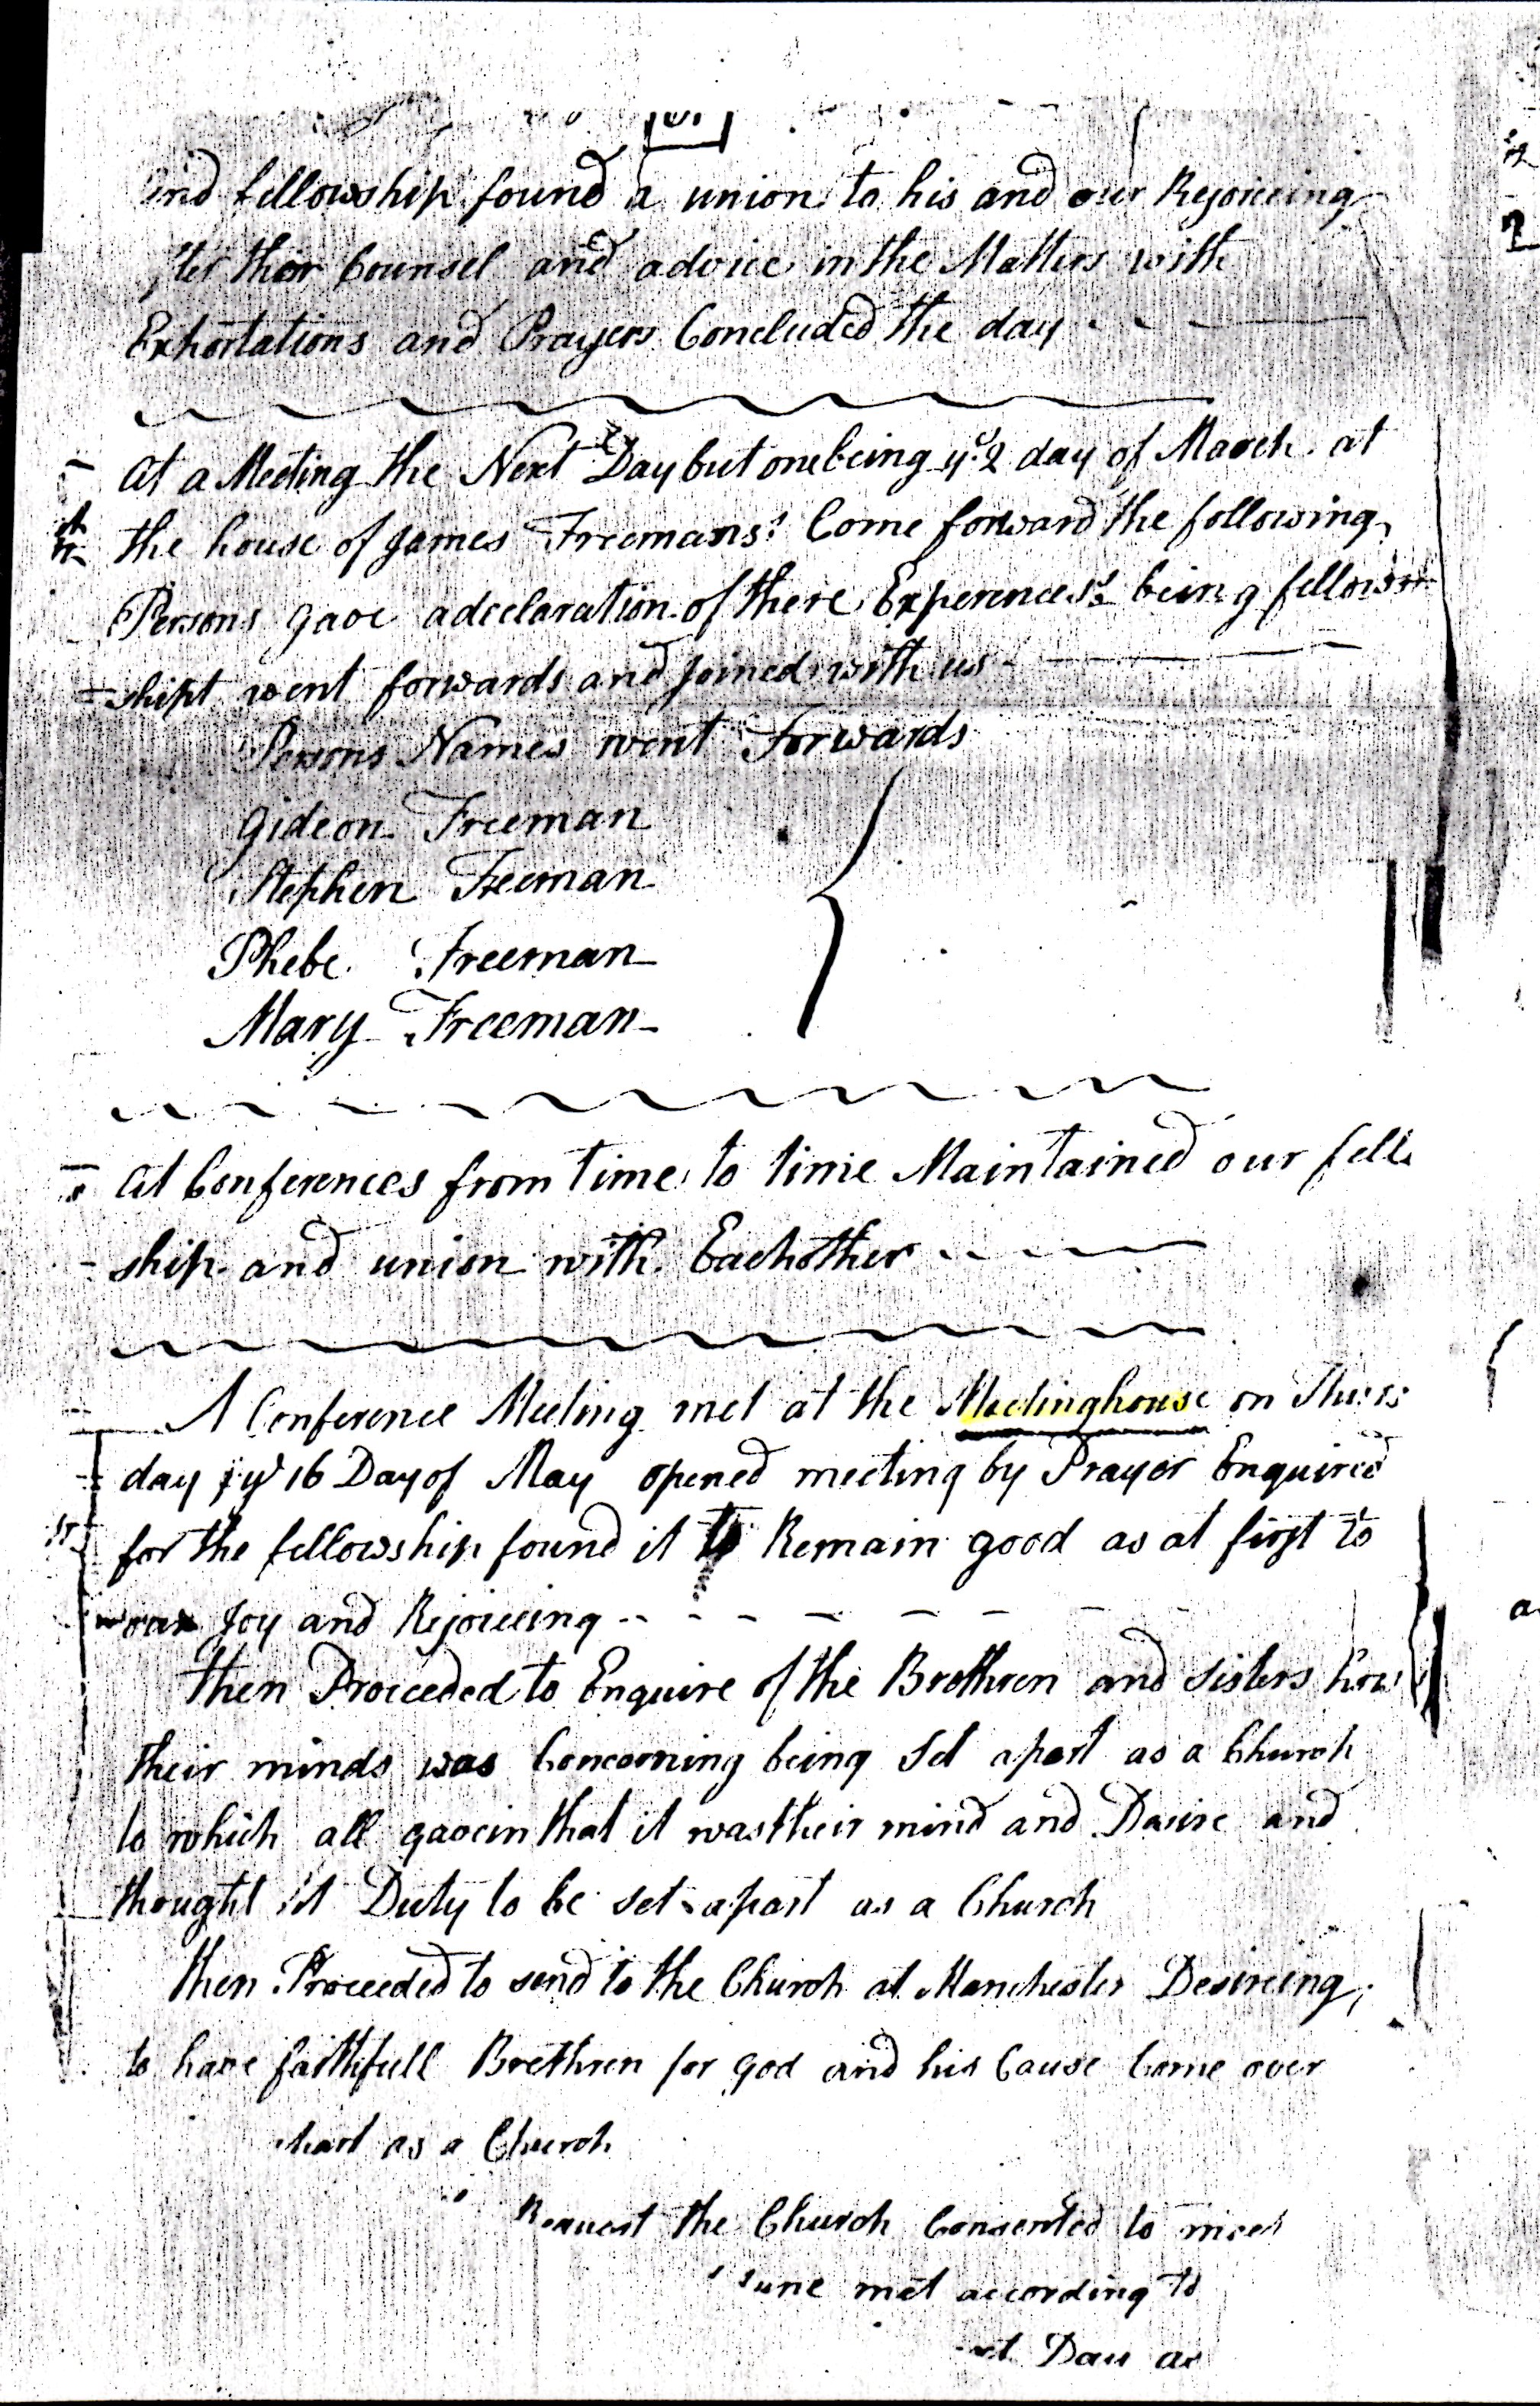 and fellowship found a union to his and our Rejoiceing
ther Counsel and advice in the Matters with
Exhortations and Prayers Concluded the day
At a Meeting the Next Day but one being ye 2 day of March at
the house of James Freemans: Come forward the following
Persons gave a decleration of there Experences: being fellow
=shipt went forwards and Joined with us
Persons Names went Forwards
Gideon Freeman
Stephen Freeman
Phebe Freeman
Mary Freeman
At Conferences from time to time Maintained our fell
ship and union with Eachother
A Conference Meeting met at the Meetinghouse on
day ye 16 Day of May opened meeting by Prayer Enquired
for the fellowship found it to Remain good as at first to
our Joy and Rejoiceing
then Proceeded to Enquire of the Brethren and sisters how
their minds was Concerning being Set apart as a Church
to which all gave in that it was their mind and Desire and
thought it Duty to be set apart as a Church
then Proceeded to send to the Church at Manchester Desireing
to have faithfull Brethren for god and his Cause Come over
as a Church
Request the Church Consented to meet
met according to
Day